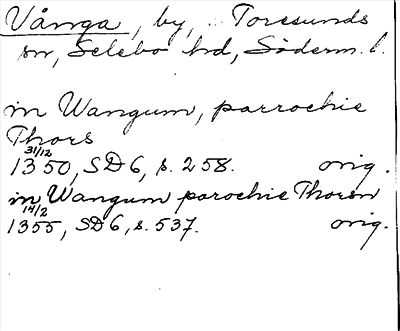 Vånga, by, Toresunds
sn, Selebo hd, Söderm. l.
in Wangum, parrochie
Thors
31/12
1350, SD 6, s. 258. orig.
in Wangum parochie Thorsn
14/2
1355, SD 6, s. 537. orig.